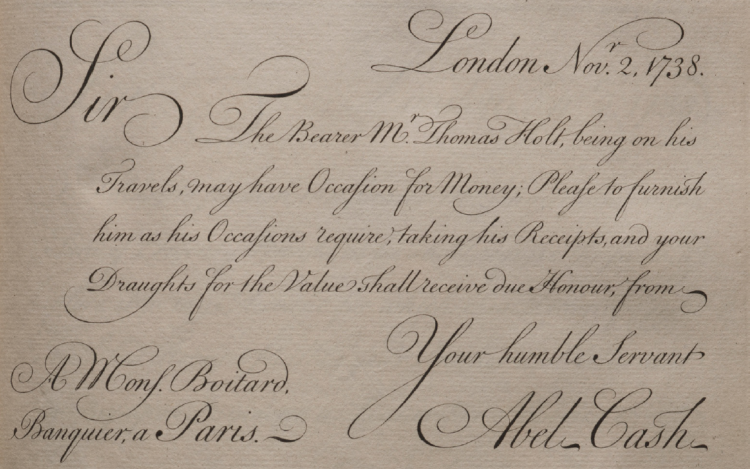 London Nov.ʳ 2, 1738.
Sir
The Bearer M.ʳ Thomas Holt, being on his
Travels, may have Occaſion for Money; Pleaſe to furnish
him as his Occaſions require, taking his Receipts, and your
Draughts for the Value shall receive due Honour, from
Your humble Servant
A Monſ. Boitard,
Banquier, a Paris.
Abel Cash